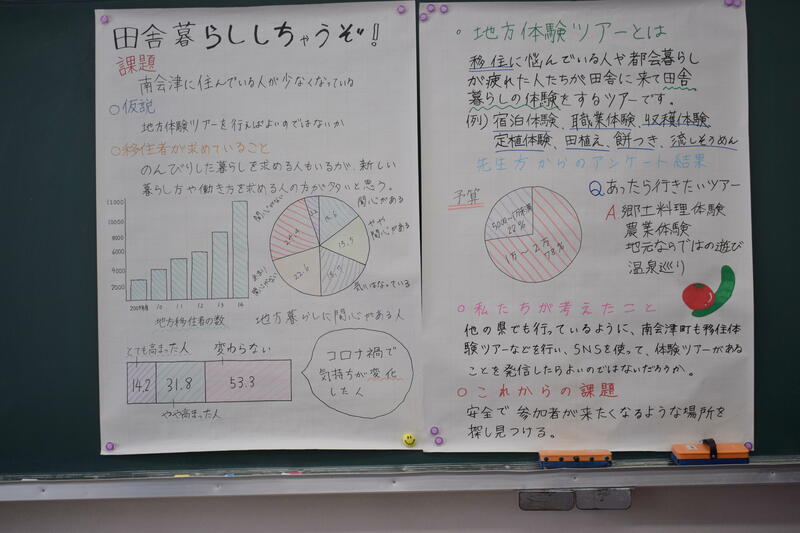 田舎暮らししちゃうぞ!
課題
南会津に住んでいる人が少なくなっている
○仮説
地方体験ツアーを行えばよいのではないか
○移住者が求めていること
のんびりした暮らしを求める人もいるが、新しい
暮らし方や働き方を求める人の方が多いと思う。
11000
10000
8000
6000
4000
2000
2009年
10
11
12
13
14
地方移住者の数
関心がない
関心がある
やや
関心がある
気にはなっている
あまり
関心がない
15.5
22.6
24.4
地方暮らしに関心がある人
とても高まった人
変わらない
14.2
31.8
53.3
やや高まった人
コロナ禍で
気持ちが変化
した人
・地方体験ツアーとは
移住に悩んでいる人や都会暮らし
が疲れた人たちが田舎に来て田舎
暮らしの体験をするツアーです。
例)宿泊体験、職業体験、収穫体験、
定植体験、田植え、餅つき、流しそうめん
先生方からのアンケート結果
予算
22%
1万~2万
78%
Q あったら行きたいツアー
A.郷土料理体験
農業体験
地元ならではの遊び
温泉巡り
○私たちが考えたこと
他の県でも行っているように、南会津町も移住体
験ツアーなどを行い、SNSを使って、体験ツアーがある
ことを発信したらよいのではないだろうか。
○これからの課題
安全で参加者が来たくなるような場所を
探し見つける。